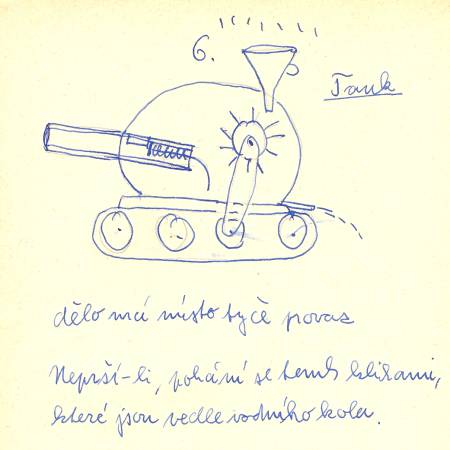 6.
Tank
dělo má místo tyče provaz
Neprší-li, pohání se tank klikami,
které jsou vedle vodního kola.